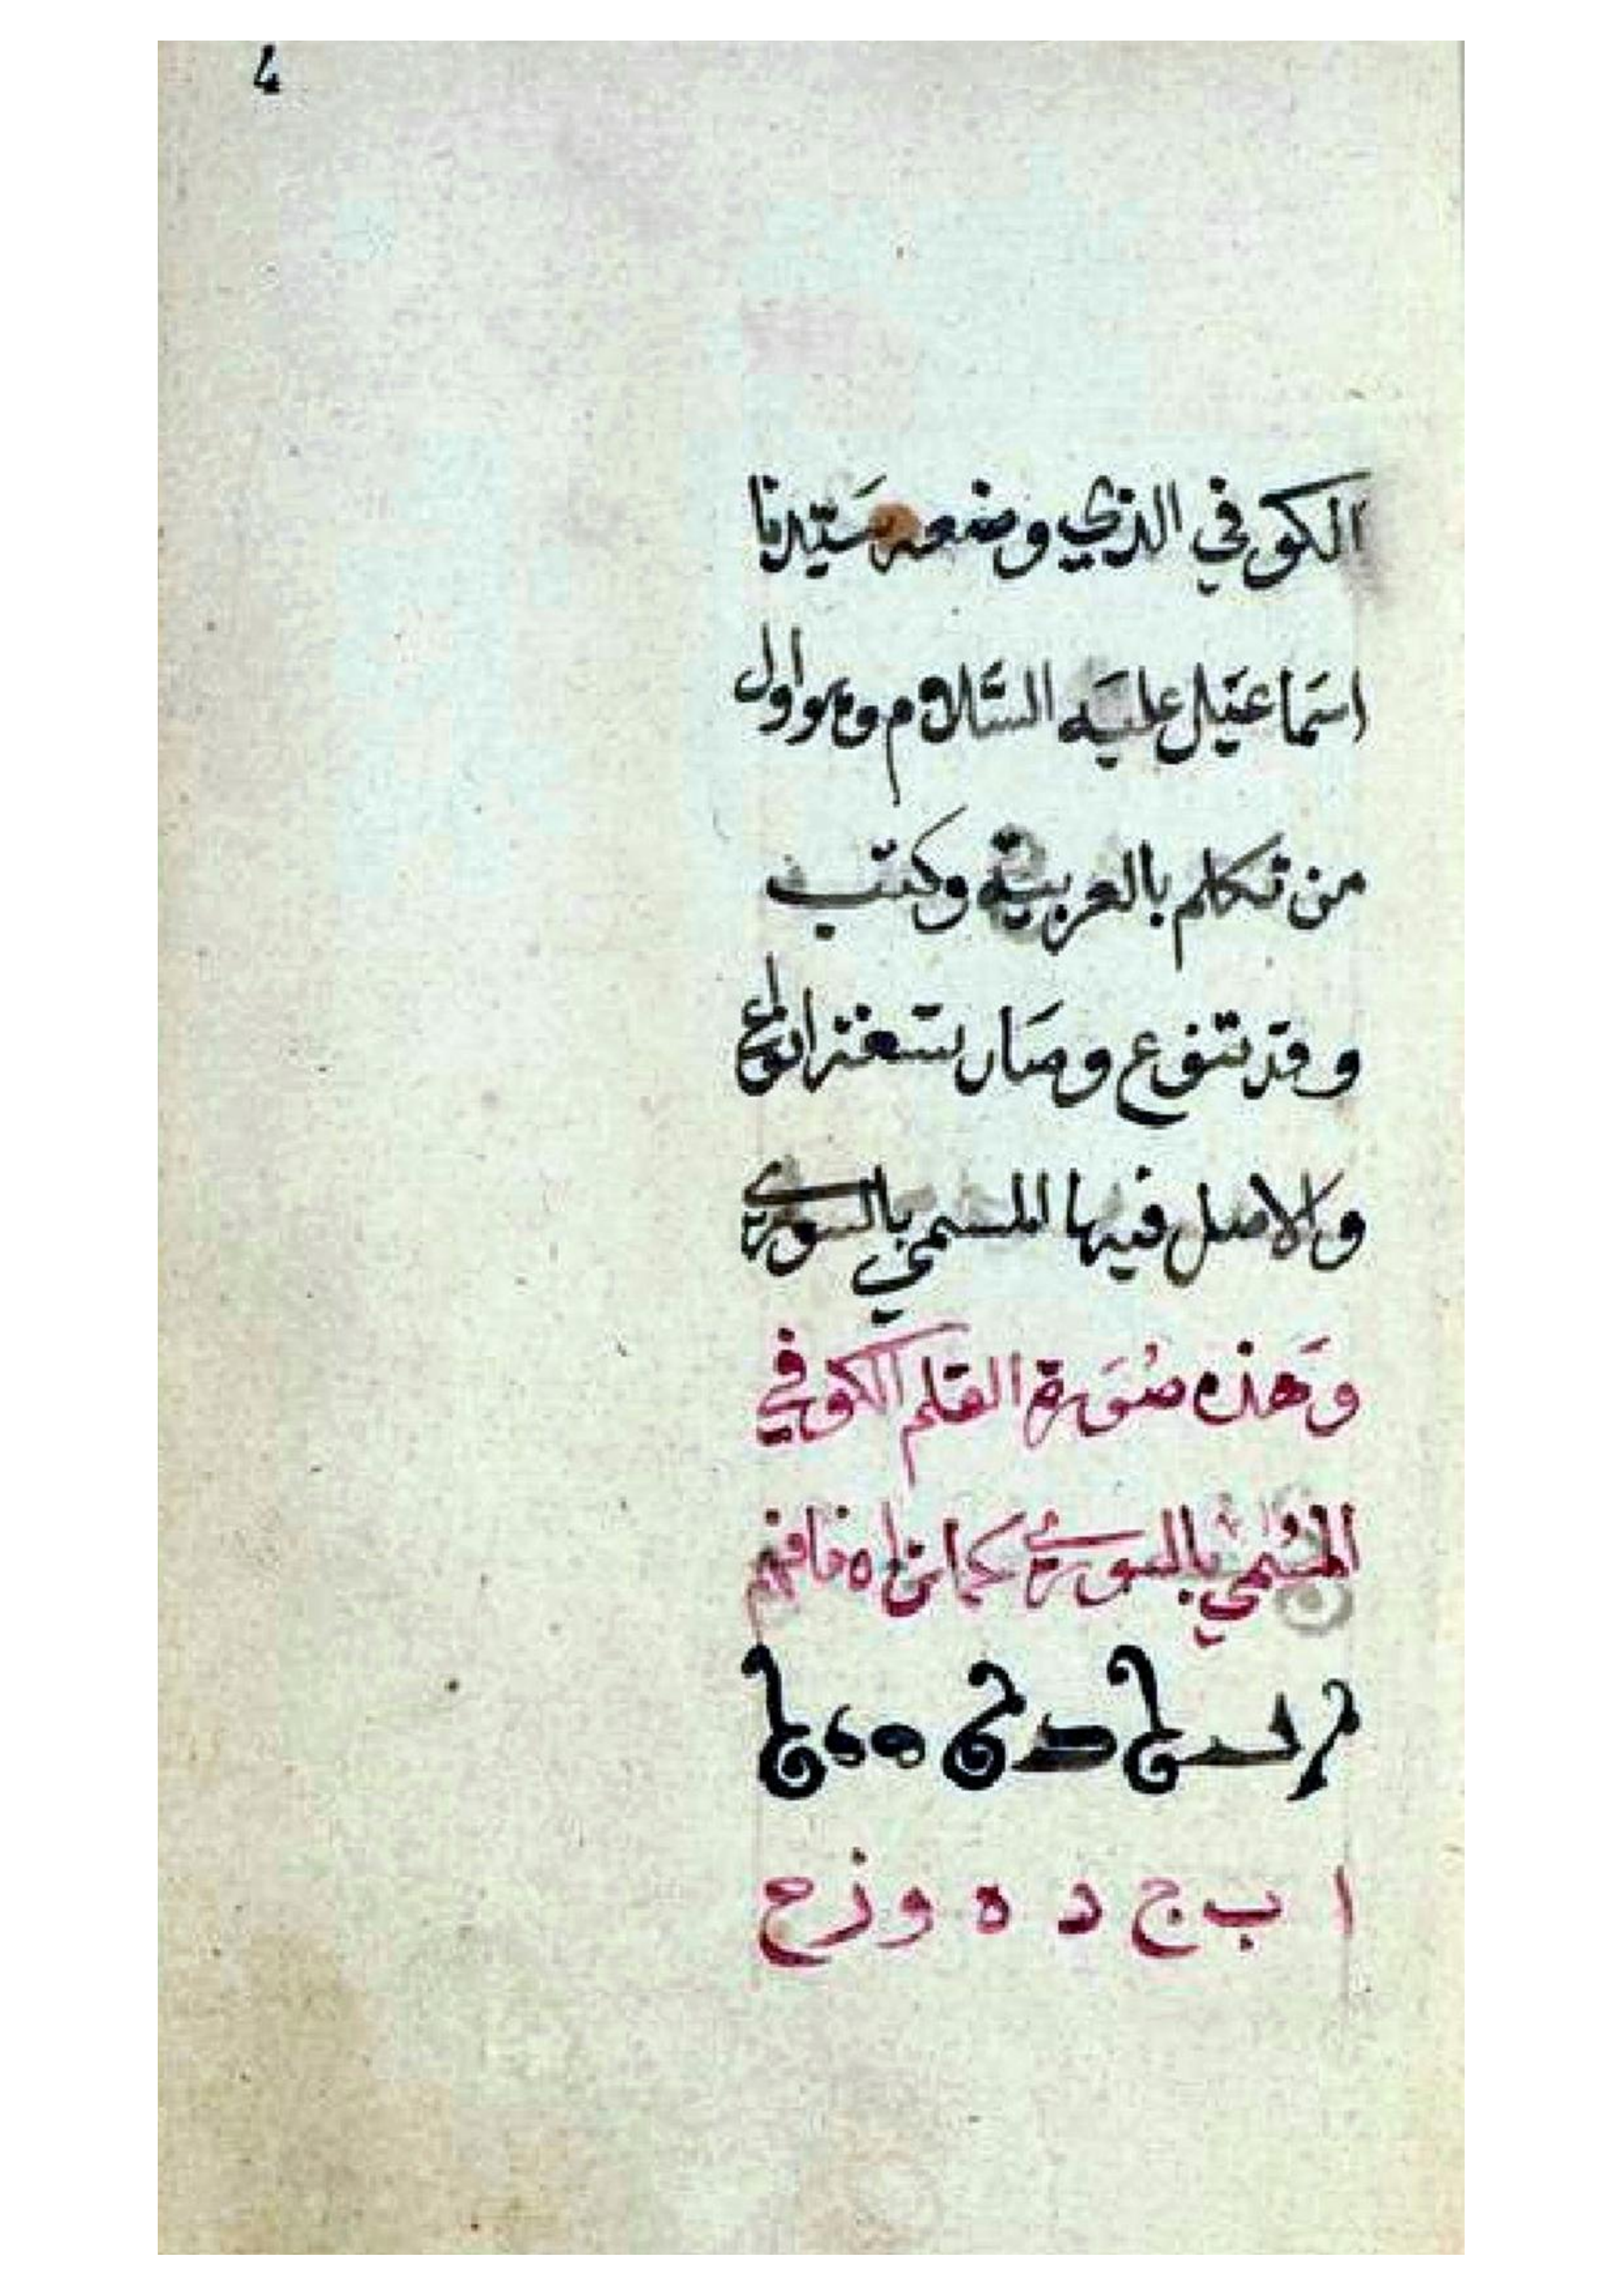 4
الكوفي الذي وضعه سَيّدنا
اسَماعيَل عليَه السَّلام وهو اول
من تكلم بالعربية وكتب
وقد تنوع وصَار تسَعة انواع
والاصل فيها المسمي بالسوري
وَهذه صُوَرة القلم الكوفي
المسُمي بالسوري كما تراه فافهم
ا ب ج د ه و ز ح